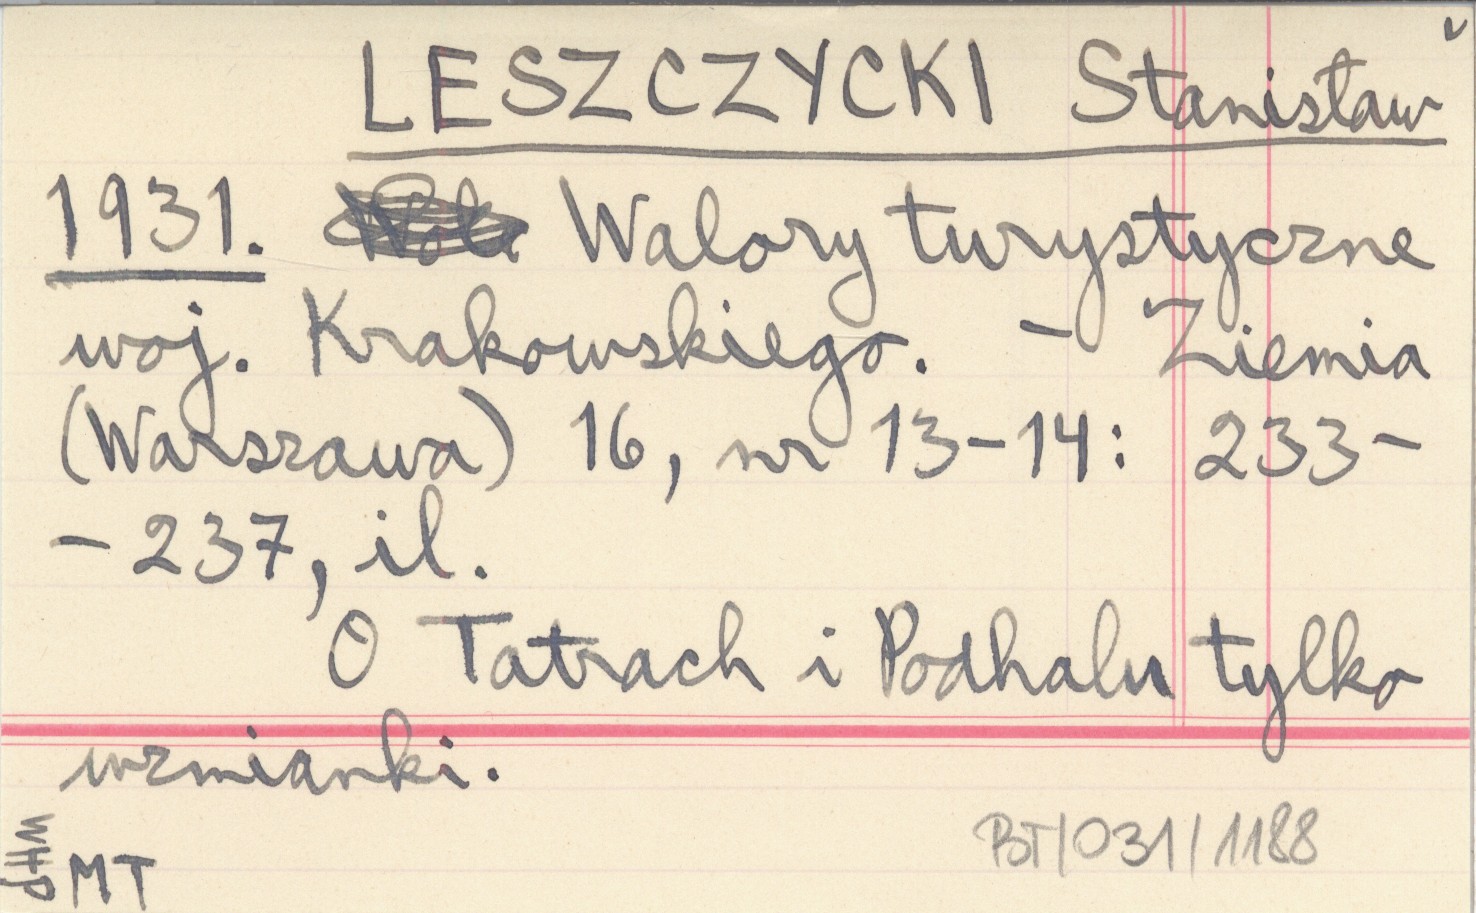 LESZCZYCKI Stanisław
1931. Walory turystyczne
woj. Krakowskiego. - Ziemia
(Warszawa) 16, nr 13-14: 233-
-237, il.
O Tatrach i Podhalu tylko
wzmianki.
MT
BT/031/1188